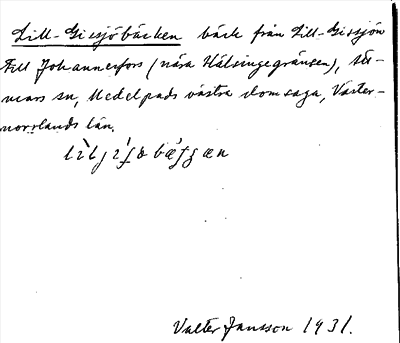 Lill-Gissjöbäcken bäck från Lill-Gissjön
till Johannesfors (nära Hälsingegränsen), Att-
mars sn, Medelpads västra domsaga, Väster-
norrlands län.
Valter Jansson 1931.